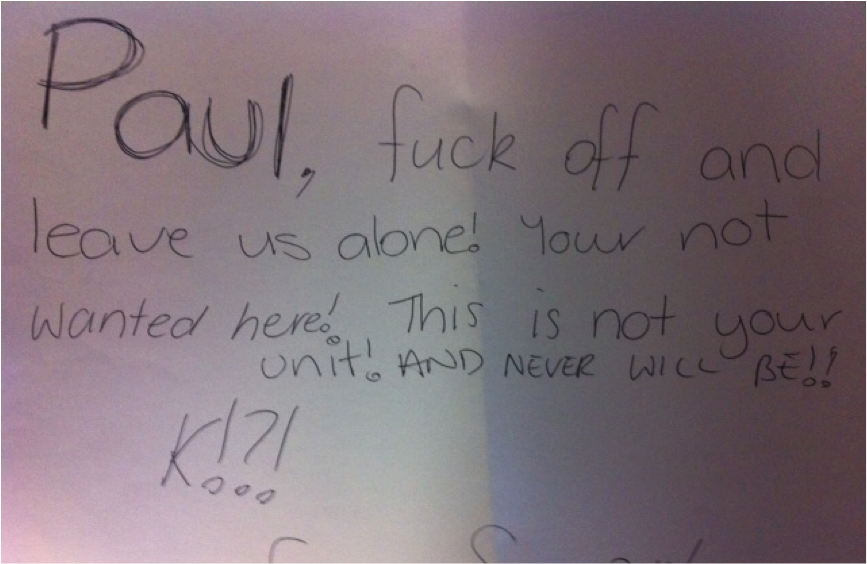 Paul, fuck off and
leave us alone! Your not
wanted here! This is not your
unit! AND NEVER WILL BE!!
K!?!